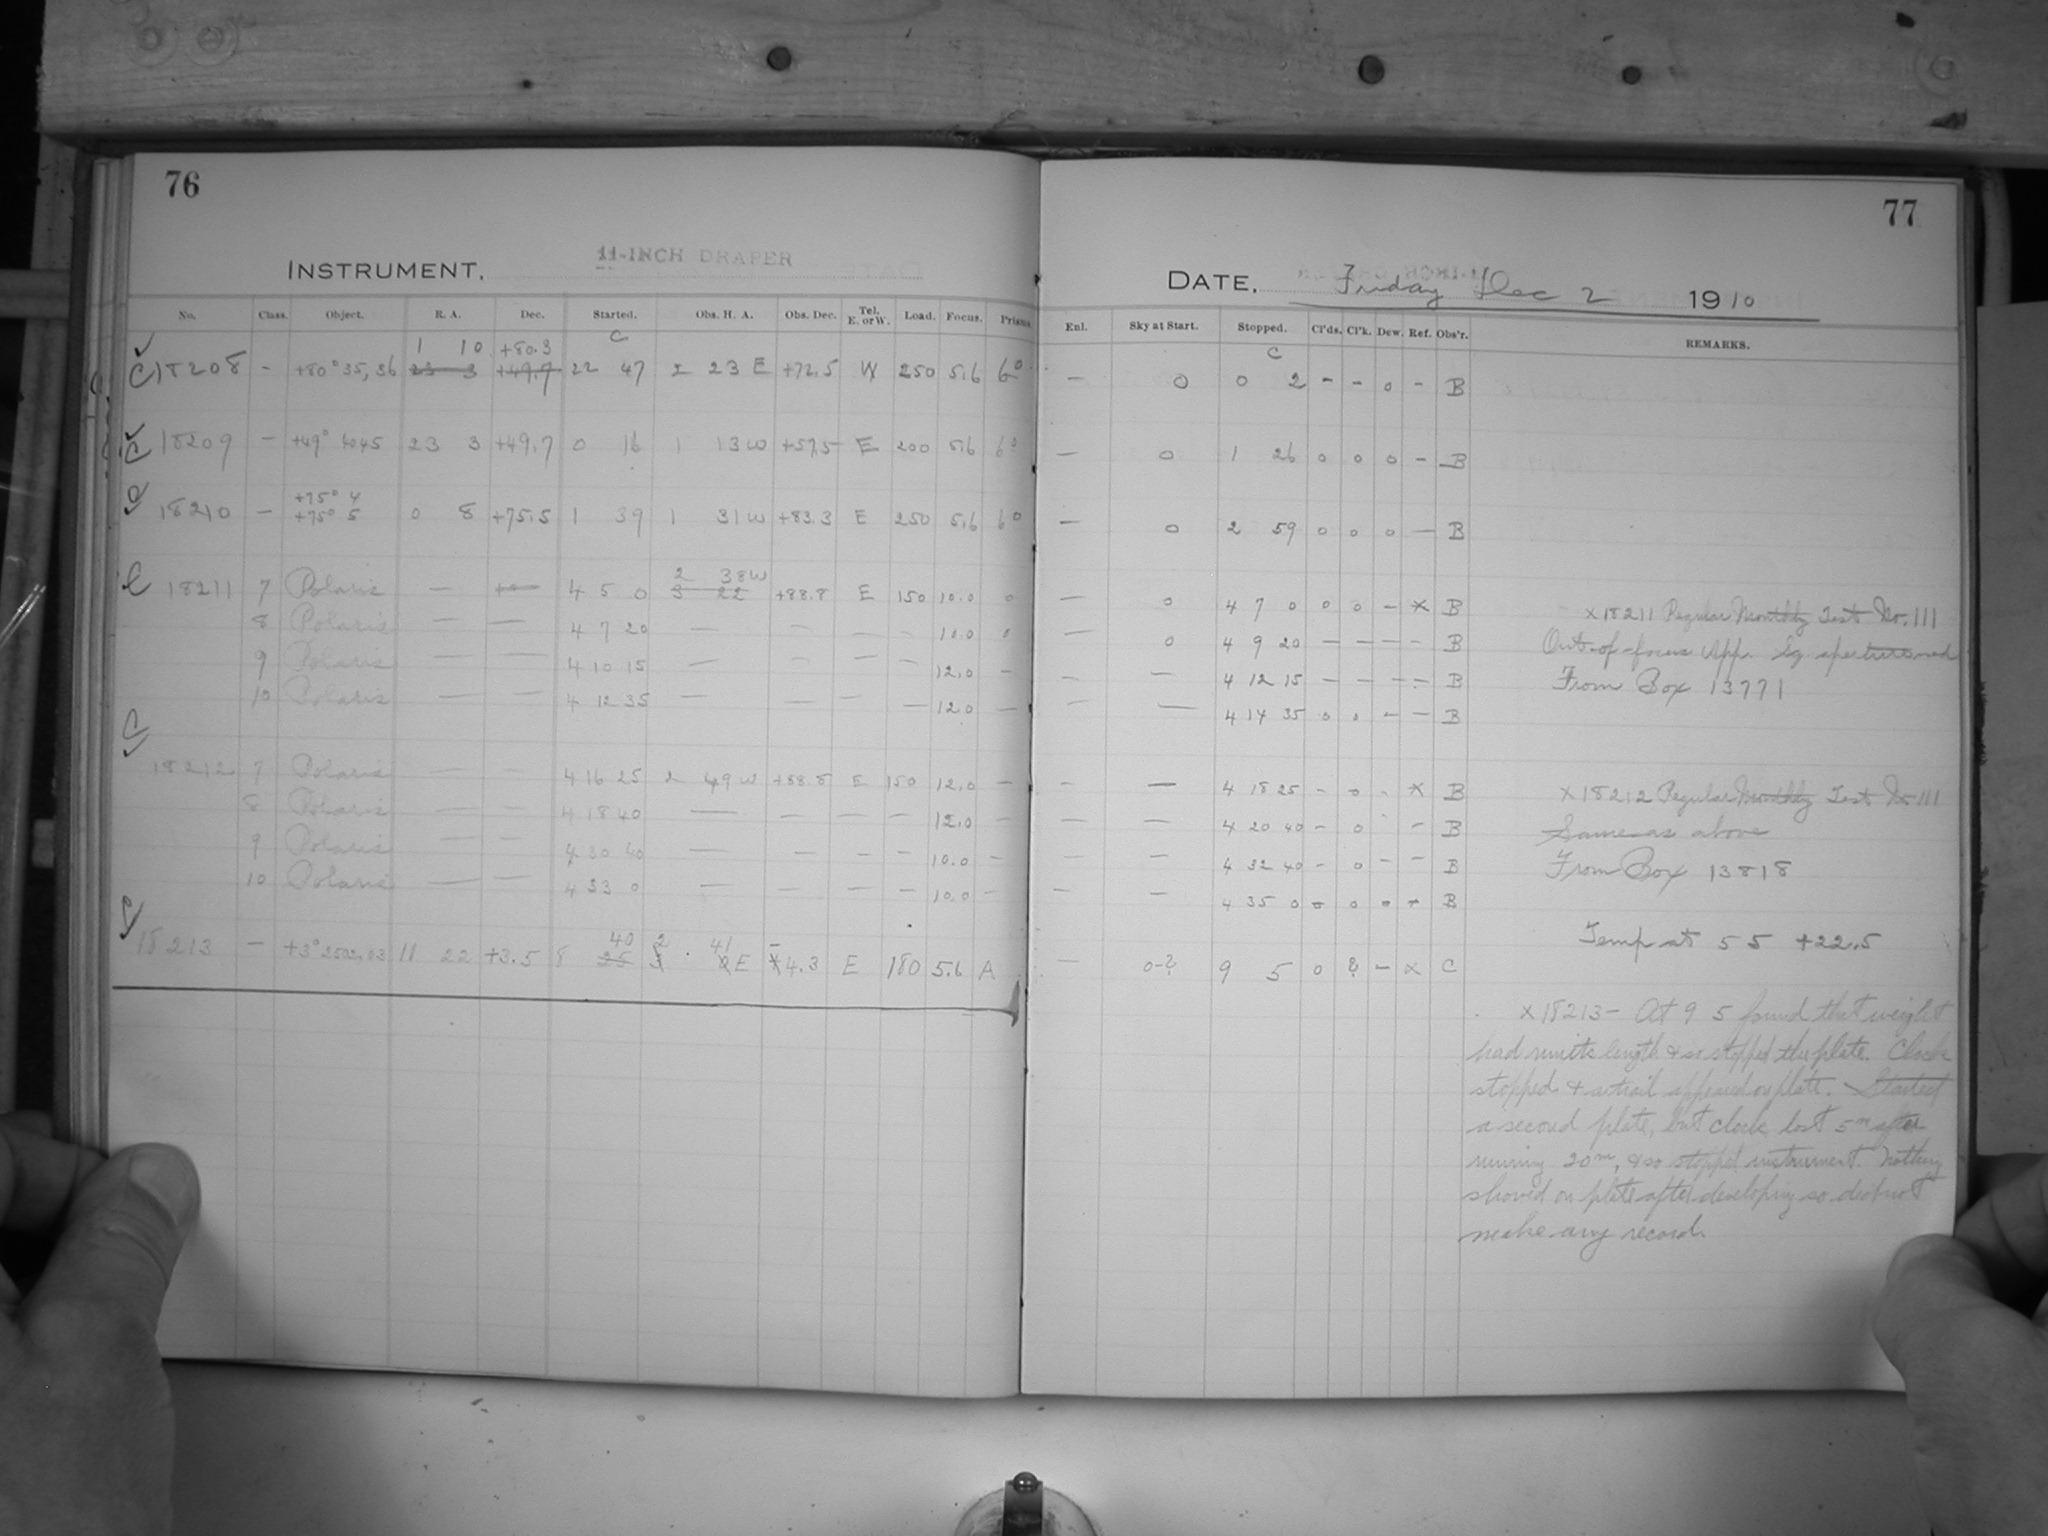 76
INSTRUMENT. 11-INCH DRAPER
No. Class. Object. R. A. Dec. Started. Obs. H. A. Obs. Dec. Tel. E. or W. Load. Focus. Prisms
1 10 +80.3 C
C 18208 - +80°35,36 23 3 +49.7 22 47 2 23 E +72.5 W 250 5.6 6°
C 18209 - +49° 4045 23 3 +49.7 0 16 1 13 W +57.5 E 200 5.6 6°
+75° 4
C 18210 - +75° 5 0 8 +75.5 1 39 1 31 W +83.3 E 250 5.6 6°
2 38 W
C 18211 7 Polaris — 4 5 0 3 22 +88.8 E 150 10.0 0
8 Polaris — — 4 7 20 — — — - 10.0 0
9 Polaris — — 4 10 15 — — — — 12.0 —
10 Polaris — — 4 12 35 — — — — 12.0 —
C
18212 7 Polaris — — 4 16 25 2 49 W +88.8 E 150 12.0 —
8 Polaris — — 4 18 40 — — — — 12.0 —
9 Polaris — — 4 30 40 — — — — 10.0 —
10 Polaris — — 4 33 0 — — — — 10.0 —
40 2 41 -
18213 — +3° 2502,03 11 22 +3.5 8 25 E 4.3 E 180 5.6 A
77
DATE. Friday Dec 2 1910
Enl. Sky at Start. Stopped. Cl'ds. Cl'k. Dew. Ref. Obs'r. REMARKS.
C
— 0 0 2 - - 0 - B
— 0 1 26 0 0 0 - B
— 0 2 59 0 0 0 — B
— 0 4 7 0 0 0 - x B x 18211 Regular Monthly Test No. 111
— 0 4 9 20 — — — — B Out-of-focus App. Sq. aperture used
— — 4 12 15 — — — — B From Box 13771
— — 4 14 35 0 0 — — B
— — 4 18 25 - 0 - x B x 18212 Regular Monthly Test No 111
— — 4 20 40 - 0 - - B Same as above
— — 4 32 40 - 0 - - B From Box 13818
— — 4 35 0 0 0 0 + B
Temp at 5 5 +22.5
— 0-2 9 5 0 2 — x C
x 18213 - At 9 5 found that weight
had run its length & so stopped the plate. Clock
stopped & a trail appeared on plate. Started
a second plate, but clock lost 5m after
running 20m, & so stopped instrument. Nothing
showed on plate after developing so did not
make any record.